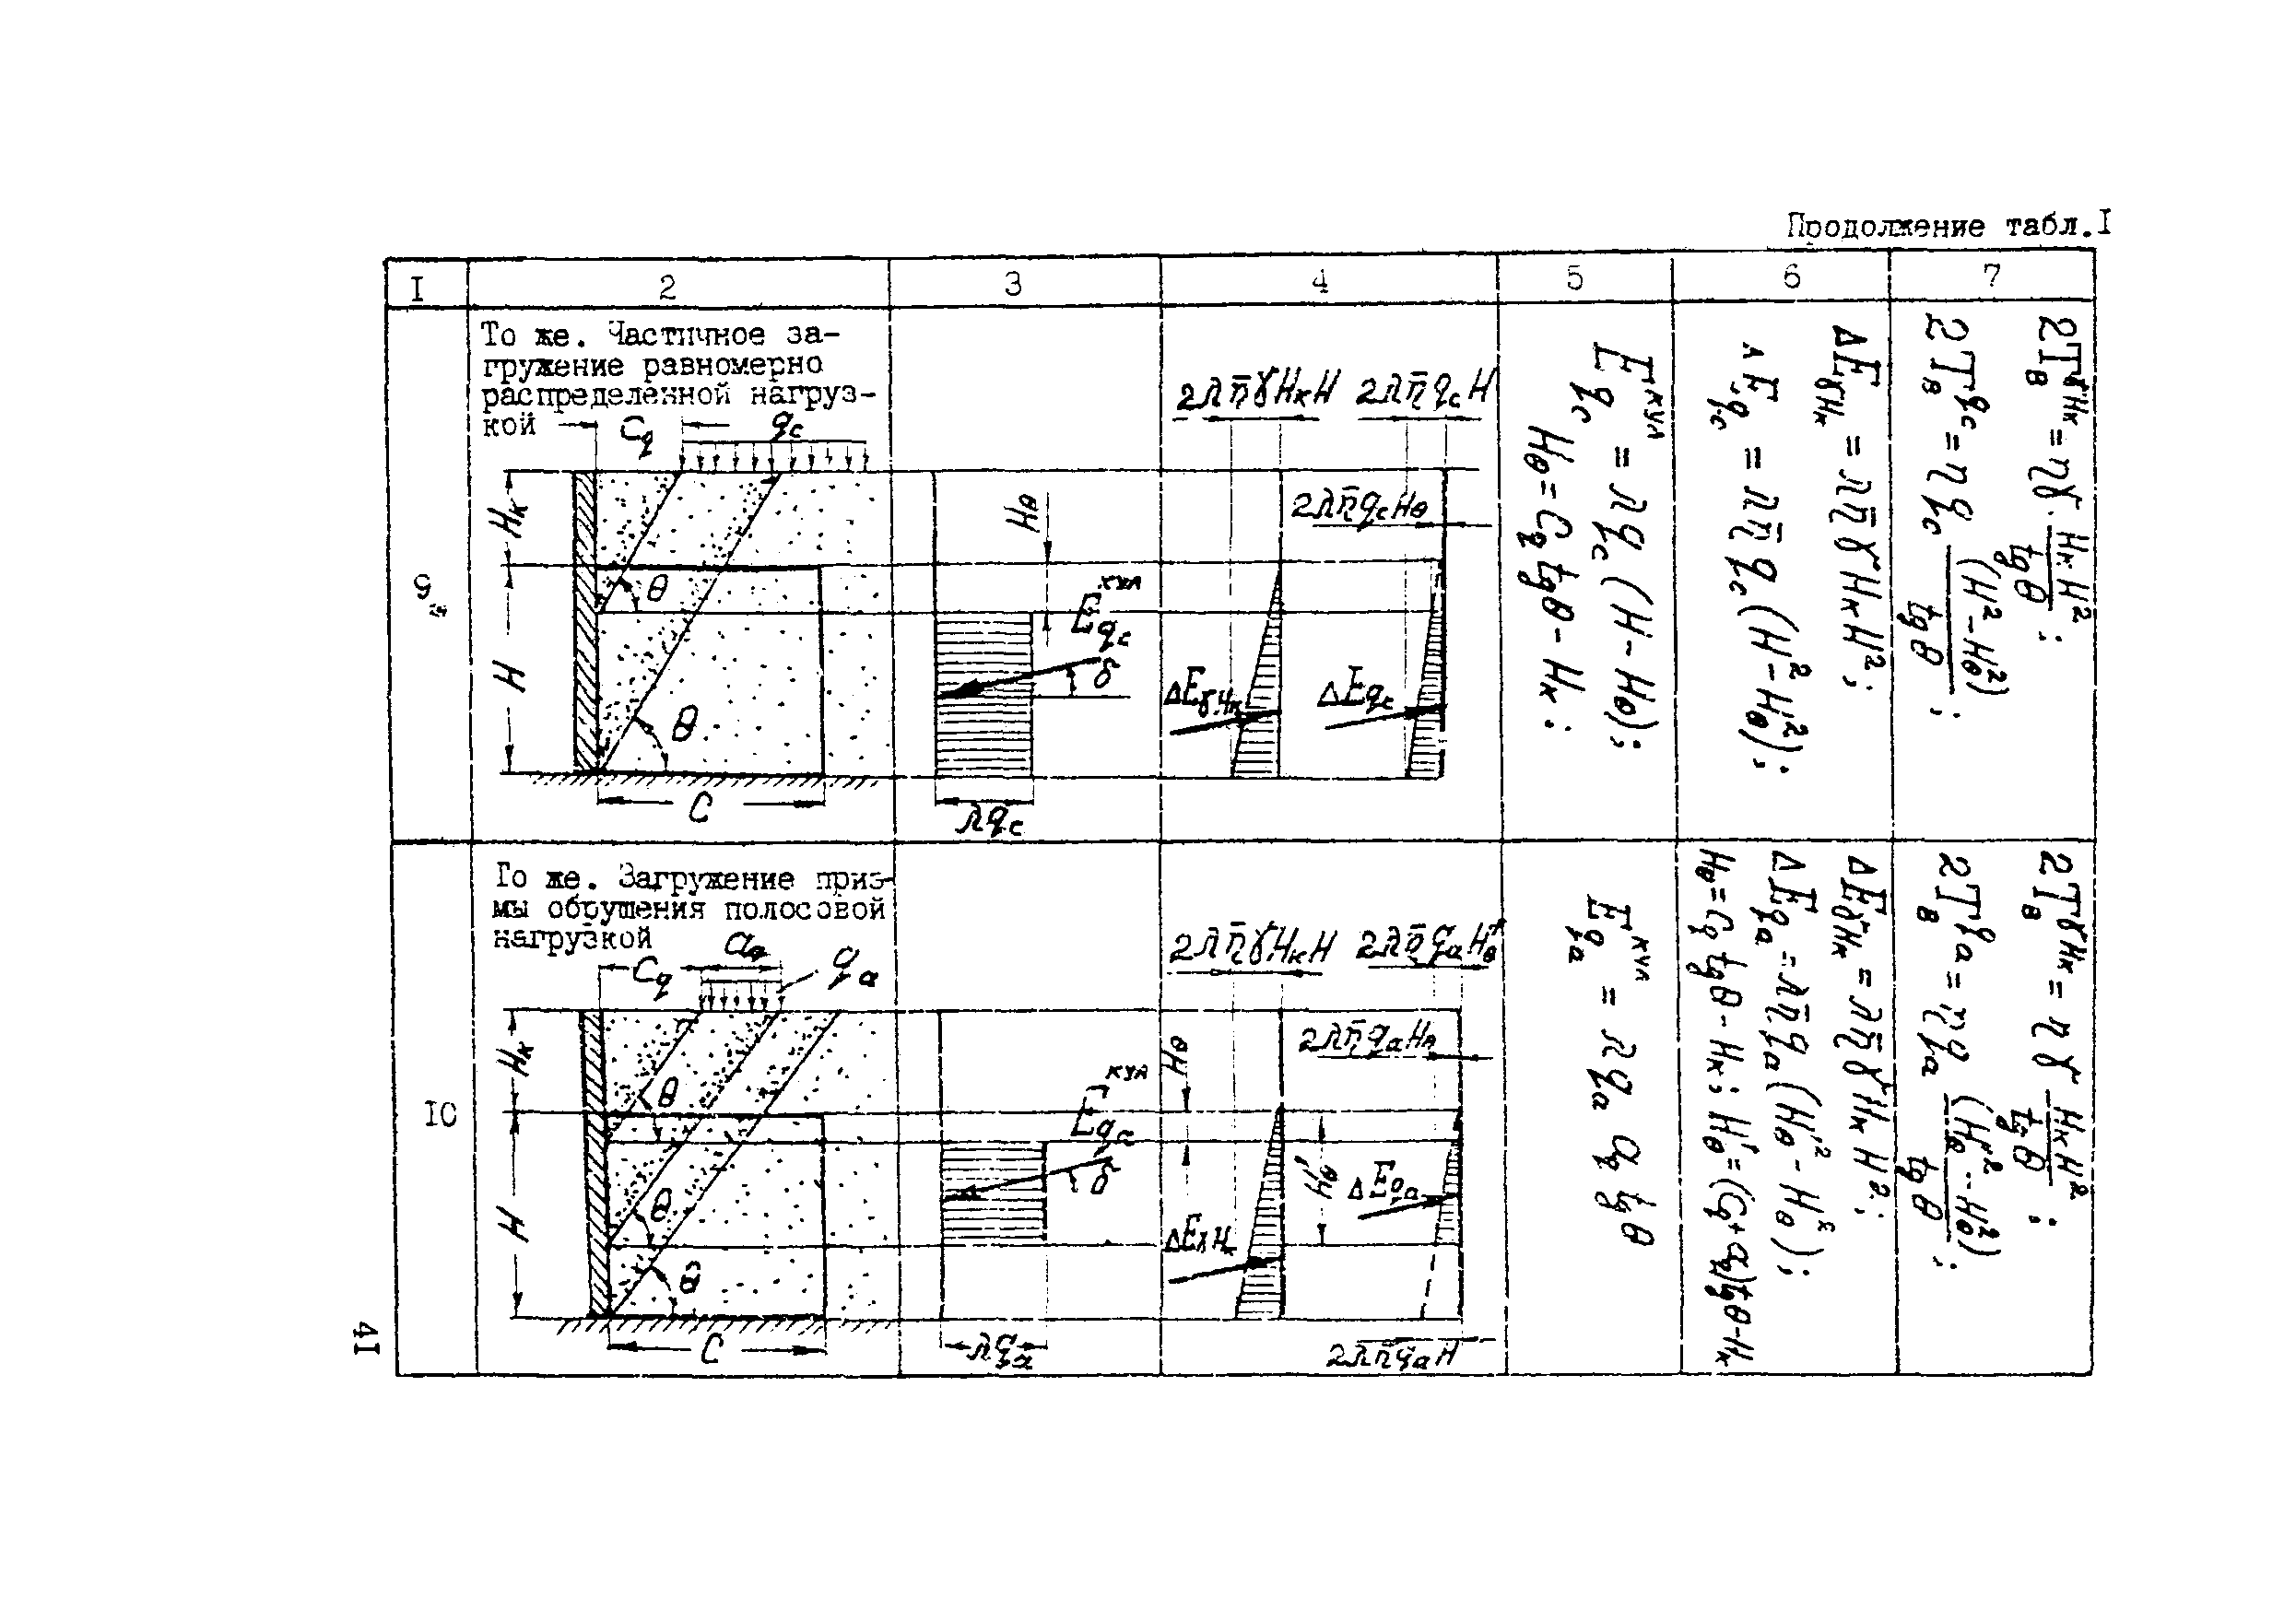 Продолжение табл.I
I 2 3 4 5 6 7
То же. Частичное за-
гружение равномерно
распределенной нагруз-
кой
C_q q_c
H_к
H
θ
θ
C
9
H_θ
E_{q_c}^{кул}
δ
λq_c
2λη̄γH_кH 2λη̄q_cH
2λη̄q_cH_θ
ΔE_{γH_к} ΔE_{q_c}
E_{q_c}^{кул} = λq_c(H-H_θ);
H_θ = C_q tgθ - H_к;
ΔE_{γH_к} = λη̄γH_кH²;
ΔE_{q_c} = λη̄q_c(H²-H_θ²);
2T_в^{γH_к} = ηγ H_кH²/tgθ;
2T_в^{q_c} = ηq_c (H²-H_θ²)/tgθ;
То же. Загружение приз-
мы обрушения полосовой
нагрузкой
C_q a_q q_a
H_к
H
θ
θ
θ
C
IO
δ
λq_a
2λη̄γH_кH
H_θ
2λη̄q_aH_θ
H'_θ
ΔE_{γH_к} ΔE_{q_a}
2λη̄q_aH
E_{q_a}^{кул} = λq_a a_q tgθ
ΔE_{γH_к} = λη̄γH_кH²;
ΔE_{q_a} = λη̄q_a(H'_θ²-H_θ²);
H_θ = C_q tgθ - H_к; H'_θ = (C_q + a_q)tgθ - H_к
2T_в^{γH_к} = ηγ H_кH²/tgθ;
2T_в^{q_a} = ηq_a (H'_θ²-H_θ²)/tgθ;
4I